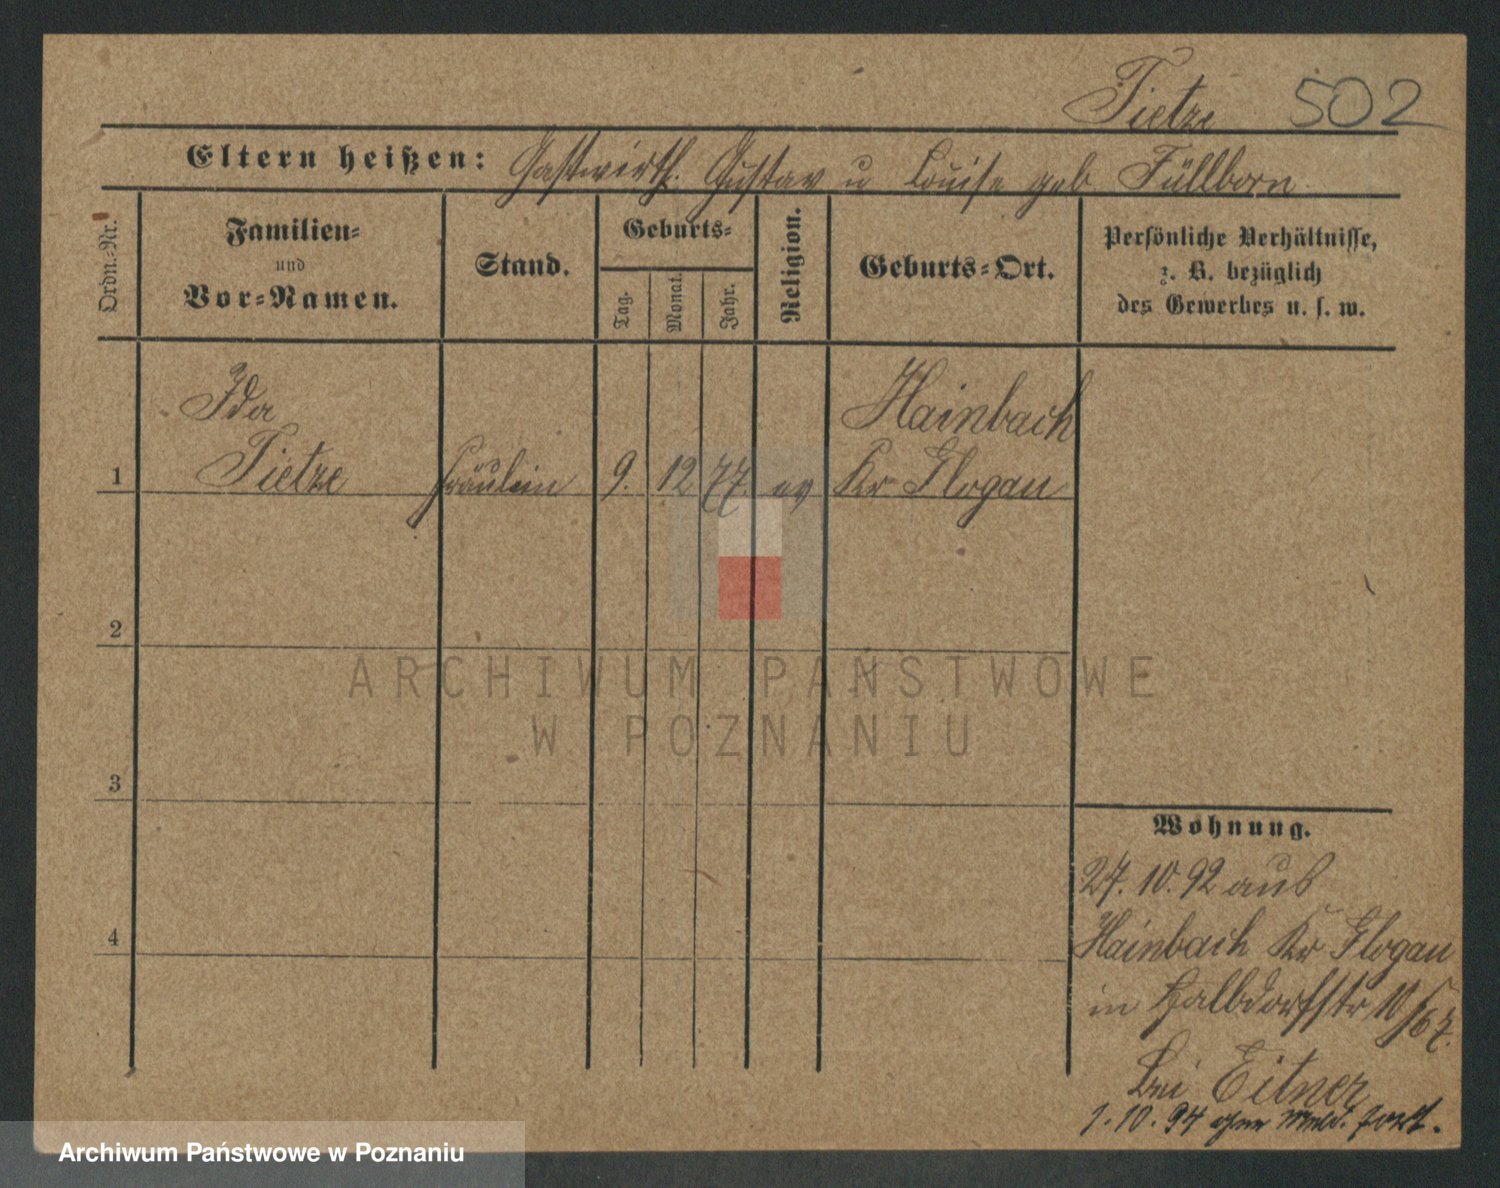 Tietze 502
Eltern heißen: Gastwirth. Gustav u Louise geb Füllborn
Ordn.-Nr.
Familien-
und
Vor-Namen.
Stand.
Geburts-
Tag.
Monat.
Jahr.
Religion.
Geburts-Ort.
Persönliche Verhältnisse,
z. B. bezüglich
des Gewerbes u. s. w.
Ida
Hainbach
1 Tietze Fräulein 9. 12 77. ev Kr Glogau
2
3
4
Wohnung.
27. 10. 92 aus
Hainbach Kr Glogau
in Halbdorfstr 10/
bei Eitner
1. 10. 94 ohne Meld. fort.
ARCHIWUM PAŃSTWOWE
W POZNANIU
Archiwum Państwowe w Poznaniu